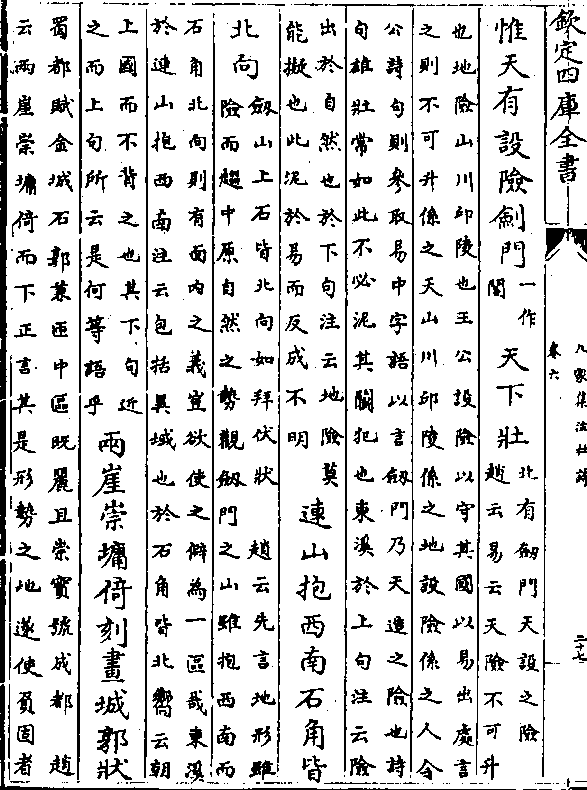 欽定四庫全書
九家集注杜詩
卷六
二十七
惟天有設險劍門
一作
閣
天下壯
北有劒門天設之險
趙云易云天險不可升
也地險山川邱陵也王公設險以守其國以易出處言
之則不可升係之天山川邱陵係之地設險係之人今
公詩句則參取易中字語以言劒門乃天造之險也詩
句雄壯常如此不必泥其關犯也東溪於上句注云險
出於自然也於下句注云地險莫
能擬也此泥於易而反成不明
連山抱西南石角皆
北向
劒山上石皆北向如拜伏狀 趙云先言地形雖
險而趨中原自然之勢觀劒門之山雖抱西南而
石角北向則有面内之義豈欲使之僻為一區哉東溪
於連山抱西南注云包括異域也於石角皆北嚮云朝
上國而不背之也其下句近
之而上句所云是何等語乎
兩崖崇墉倚刻畫城郭狀
蜀都賦金城石郭兼匝中區既麗且崇實號成都 趙
云兩崖崇墉倚而下正言其是形勢之地遂使負固者